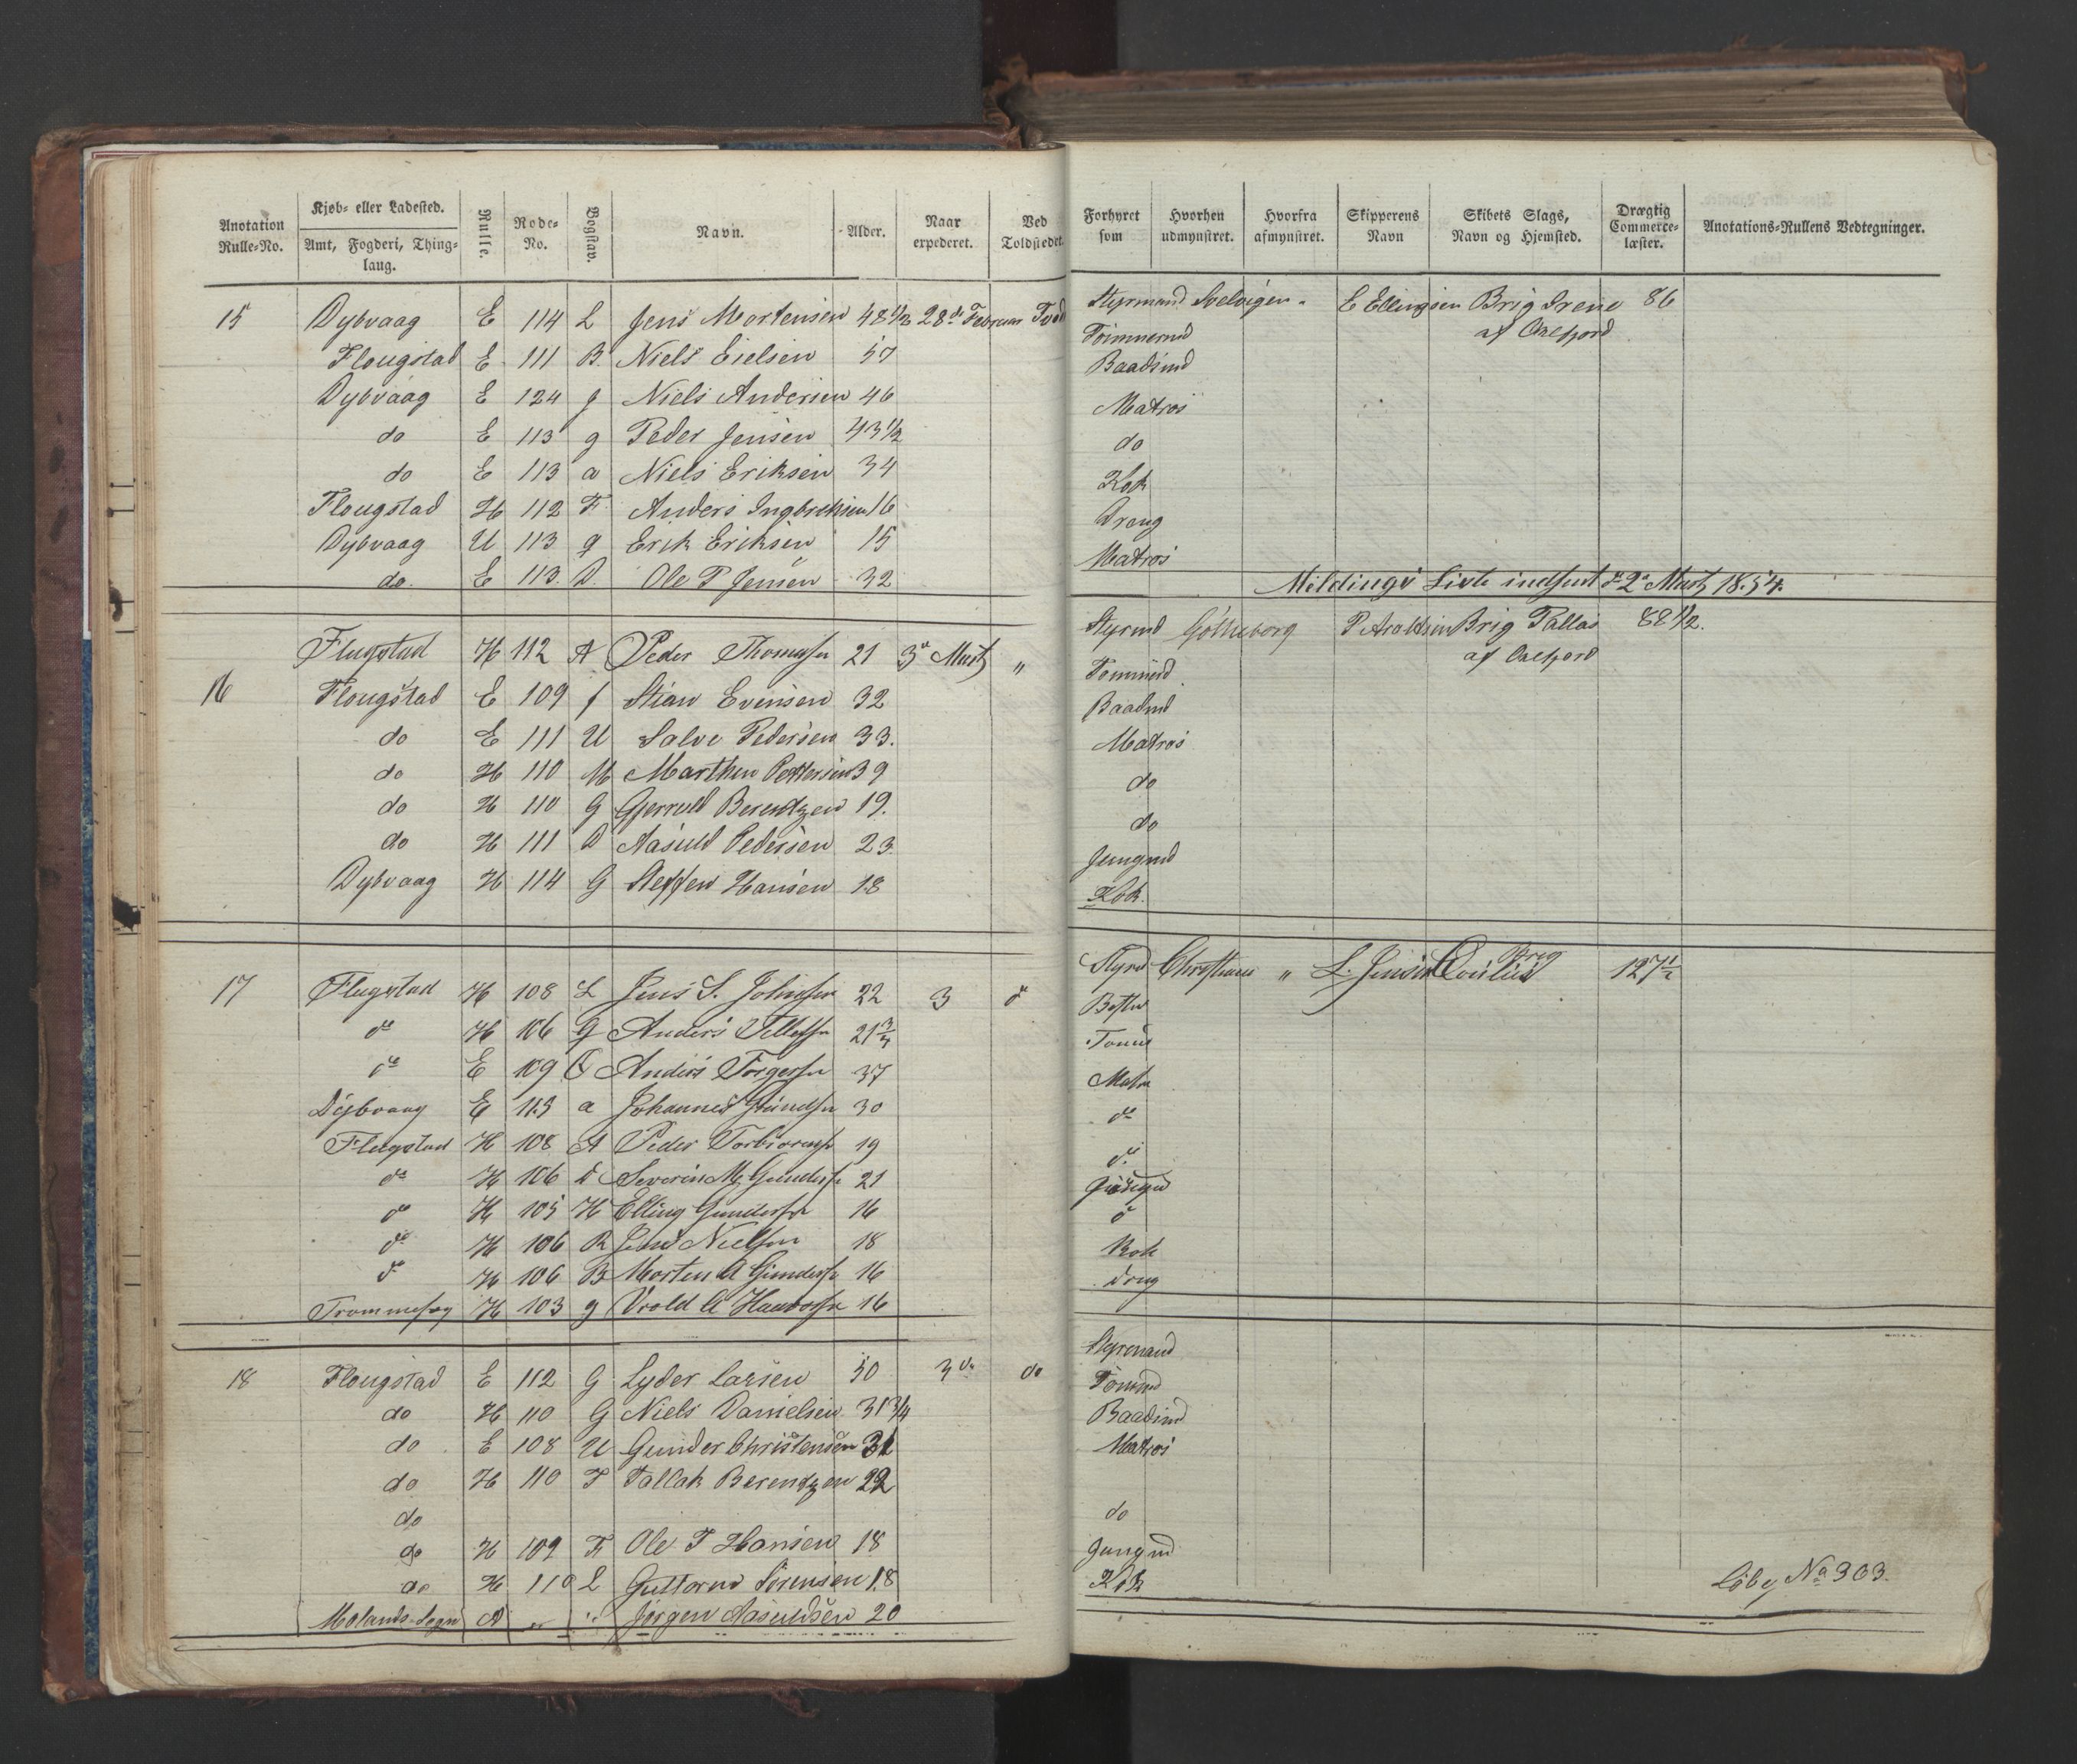 Anotation Rulle-No. Kjøb- eller Ladested. Amt, Fogderi, Thing-laug. Rulle. Rode-No. Bogstav. Navn. Alder. Naar expederet. Ved Toldstedet. Forhyret som Hvorhen udmynstret. Hvorfra afmynstret. Skipperens Navn Skibets Slags, Navn og Hjemsted. Drægtig Commerce-læster. Anotations-Rullens Vedtegninger.
15 Dybvaag E 114 L Jens Mortensen 48 1/2 28de Februar Tved Styrmand Svelvigen E Ellingsen Brig Irene 86
af
Flougstad E 111 B. Niels Eielsen 57 Tømmermd
Dybvaag E 124 J Niels Andersen 46 Baadsmd
do E 113 g Peder Jensen 43 1/2 Matros
do E 113 a Niels Eriksen 34 do
Flougstad H 112 F. Anders Ingbrektsen 16 Kok
Dybvaag U 113 g Erik Eriksen 15 Dreng
do. E 113. D. Ole P Jensen 32 Matros
Meldings Liste indført d 2 Marts 1854.
Flugstad H 112 A Peder Thomasn 21 3d Marts " Styrmd Gøtheborg Brig Pallas 88 1/2.
af
16 Flougstad E 109 f Stian Evensen 32 Tømmrd
do E 111 U Salve Pedersen 33. Baadmd
do H 110 M Marthin Pettersen 39 Matros
do H 110 G Gjerruld Berentzen 19. do
do H 111 D Aasuld Pedersen 23. do
Dybvaag H 114 G Steffen Hansen 18 Jungmd
Kok.
17 Flugstad H 108 L Jens S. Johnsen 22 3 do Styrd " L. Jensen Brig 127 1/2
do H 106 G Anders Tellefsn 21 3/4
do E 109 Anders Torgersn 37
Dybvaag E 113 a Johannes 30 do
Flugstad H 108 A Peder 19 do
do H 106 D Severin M. Gundersn 21
do H 105 H Elling Gundersn 16 do
do H 106 R Jens Nielsen 18 Kok
do H 106 B Morten A Gundersn 16 Dreng
H 103 g 16
18 Flougstad E 112 G Lyder Larsen 50 3do do Styrmand
do H 110 G Niels Danielsen 31 3/4 Tømmd
do E 108 U Gunder Christensen 31 Baadsmd
do H 110 T Tallak Berentzen 22 Matros
do
do H 109 F. Ole T Hansen 18 do
do H 110 L Guttorm Sørensen 18 Jungmd
Molands-Sogn A " " Jørgen Aasuldsen 20 Kok
Løbe No 303.